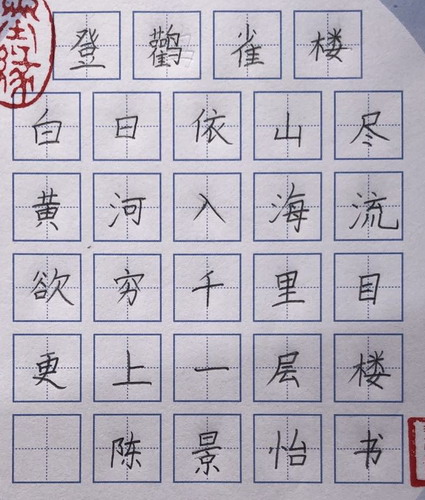 登鹳雀楼
白日依山尽
黄河入海流
欲穷千里目
更上一层楼
陈景怡书